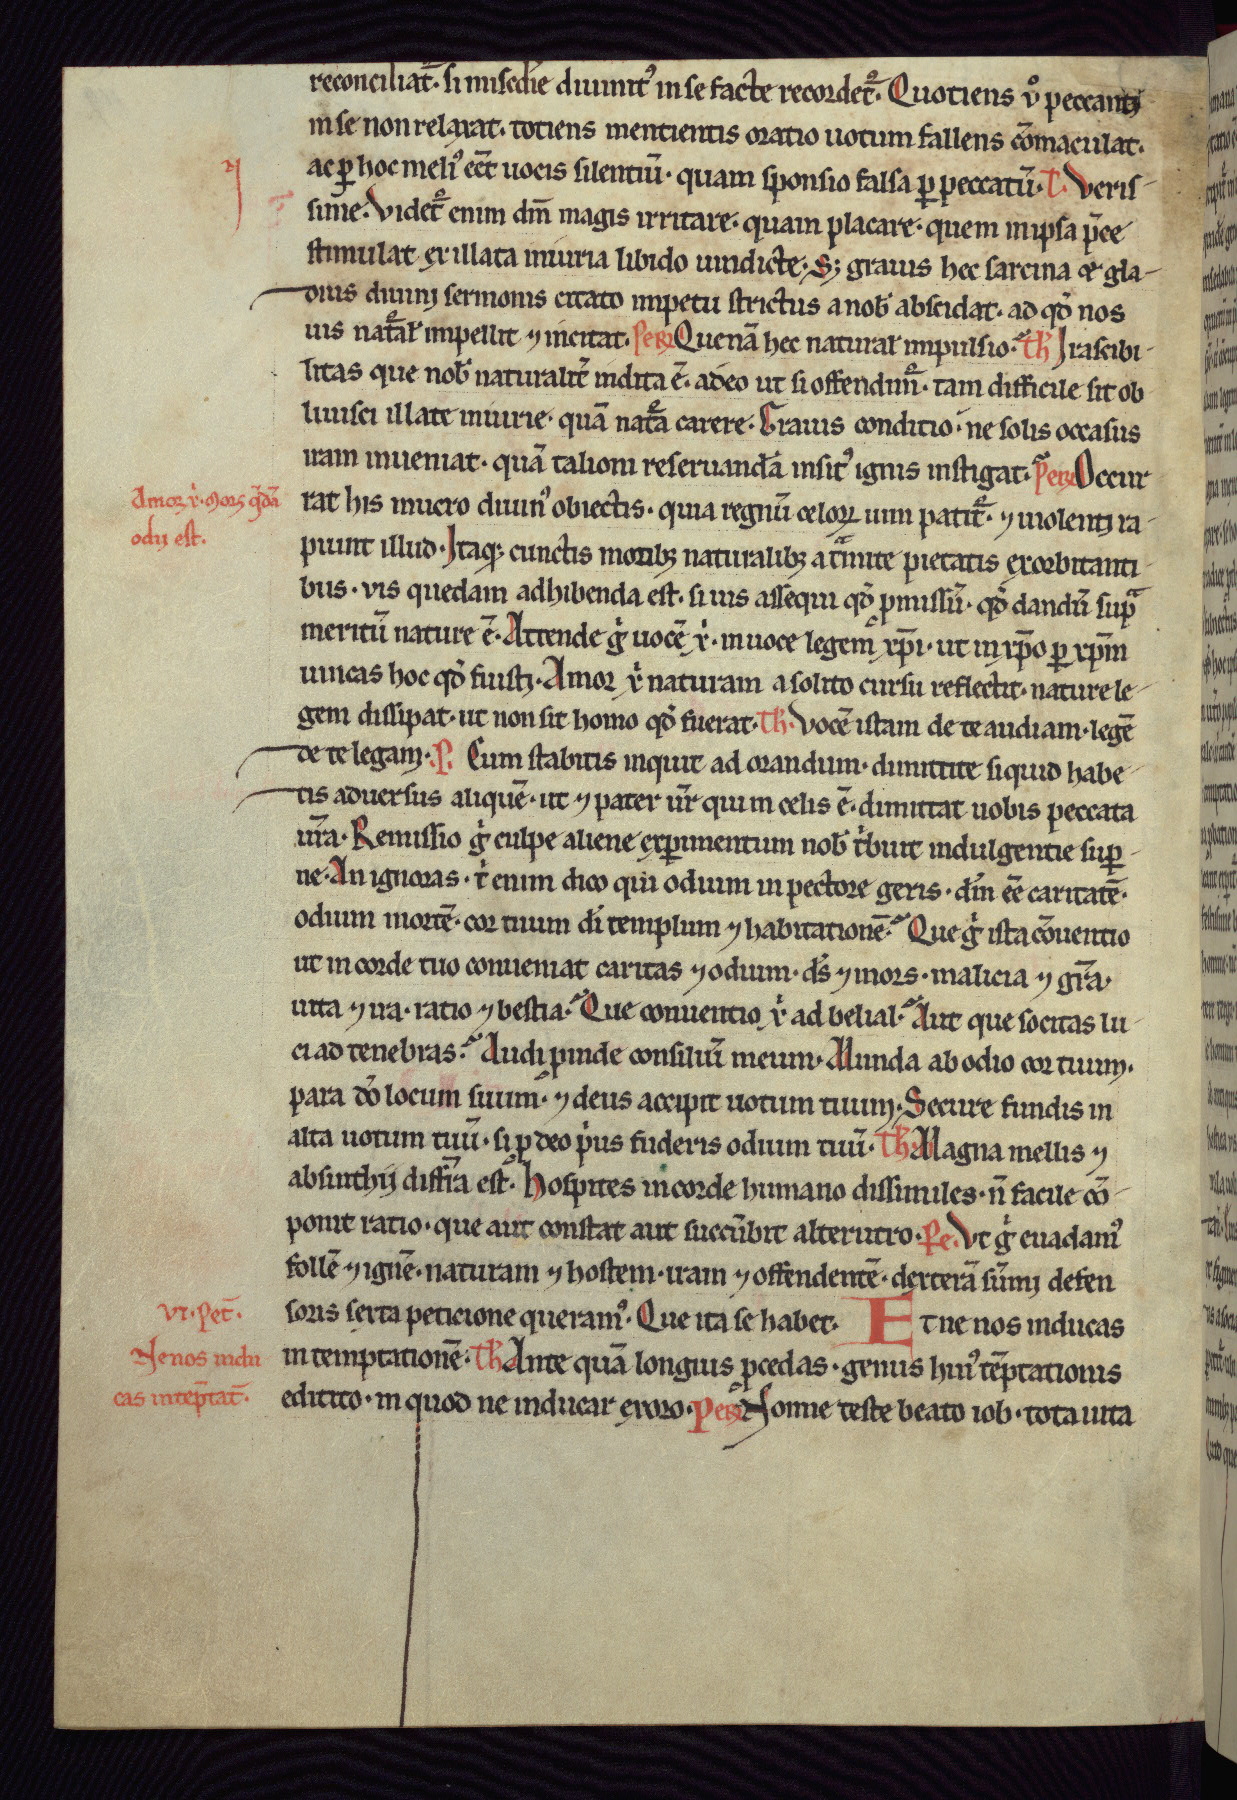 reconciliat᷑· si misc̄die diuinit᷒ in se facte recordet᷑· Quotiens v̊ peccantj
in se non relaxat· totiens mentientis oratio uotum fallens c̄omaculat·
ac ꝑ hoc meli᷒ eēt uocis silentiū· quam sponsio falsa ꝑ peccatū· T· Veris-
sime· Videt᷑ enim dm̄ magis irritare· quam placare· quem in ipsa p̄ce
stimulat ex illata iniuria libido uindicte· Sꝫ grauis hec sarcina ⁊ gla-
dius diuinj sermonis citato impetu strictus a nob̄ abscidat· ad qd̄ nos
uis nat᷑aƚ impellit ⁊ incitat· Petꝰ Quenā hec naturaƚ impulsio· Th̄ Irascibi-
litas que nob̄ naturalit̄ indita ē· adeo ut si offendim᷑· tam difficile sit ob
liuisci illate iniurie· quā nat᷑a carere· Grauis conditio· ne solis occasus
iram inueniat· quā talioni reseruandā insit᷒ ignis instigat· Petꝰ Occur
rat his mucro diuin᷒ obiectis· quia regnū celoꝝ uim patit᷑· ⁊ uiolentj ra-
piunt illud· Itaqꝫ cunctis motibꝫ naturalibꝫ a t̄mite pietatis exorbitanti-
bus· vis quedam adhibenda est· si uis assequi qd̄ ꝓmissū· qd̄ dandū sup̄
meritū nature ē· Attende g̊ uocē x̊· in uoce legem xp̄i· ut in xp̄o ꝑ xp̄m
uincas hoc qd̄ fuistj· Amor x̊ naturam a solito cursu reflectit· nature le-
gem dissipat· ut non sit homo qd̄ fuerat· Th̄· Vocē istam de te audiam· legē
de te legam· P· Cum stabitis inquit ad orandum· dimittite si quid habe-
tis aduersus aliquē· ut ⁊ pater ur̄ qui in celis ē· dimittat uobis peccata
ur̄a· Remissio g̊ culpe aliene exꝑimentum nob̄ t̊buit indulgentie suꝑ-
ne· An ignoras· t̊ enim dico qui odium in pectore geris· dm̄ eē caritatē·
odium mortē· cor tuum di̊ templum ⁊ habitationē· Que g̊ ista cōuentio
ut in corde tuo conueniat caritas ⁊ odium· ds̄ ⁊ mors· malicia ⁊ gr̄a·
uita ⁊ ira· ratio ⁊ bestia· Que conuentio x̊ ad belial· Aut que socitas lu-
ci ad tenebras· Audi ꝓinde consiliū meum· Munda ab odio cor tuum·
para dō locum suum· ⁊ deus accipit uotum tuum· Secure fundis in
alta uotum tuū· si ꝓ deo p̊us fuderis odium tuū· Th̄· Magna mellis ⁊
absinthij diffr̄a est· Hospites in corde humano dissimiles· n̄ facile cō-
ponit ratio· que aut constat aut succūbit alterutro· Pe· Vt g̊ euadam᷒
follē ⁊ ignē· naturam ⁊ hostem· iram ⁊ offendentē· dexterā sūmj defen
soris sexta peticione queram᷒· Que ita se habet· Et ne nos inducas
in temptationē· Th̄ Ante quā longius ꝓcedas· genus hui᷒ tēptationis
edicito· in quod ne inducar exoro· Petꝰ Nonne teste beato iob· tota uita
Amor x̊· mors q̄dā
odij est·
VI· Pet̄·
Ne nos indu
cas in tep̄tat̄·